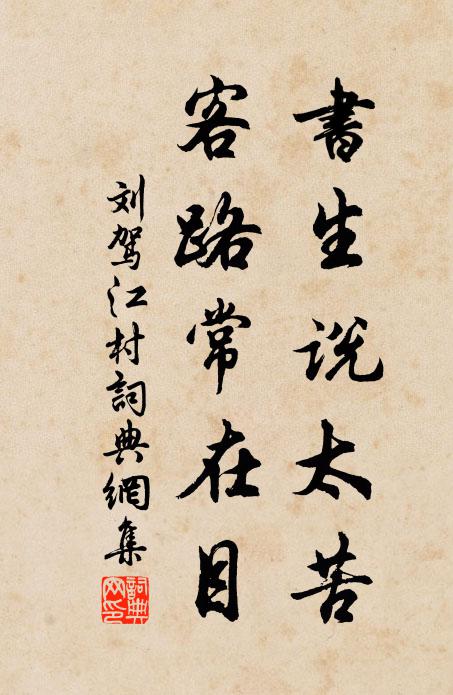 書生說太苦
客路常在目
刘駕江村詞典網集
詞典